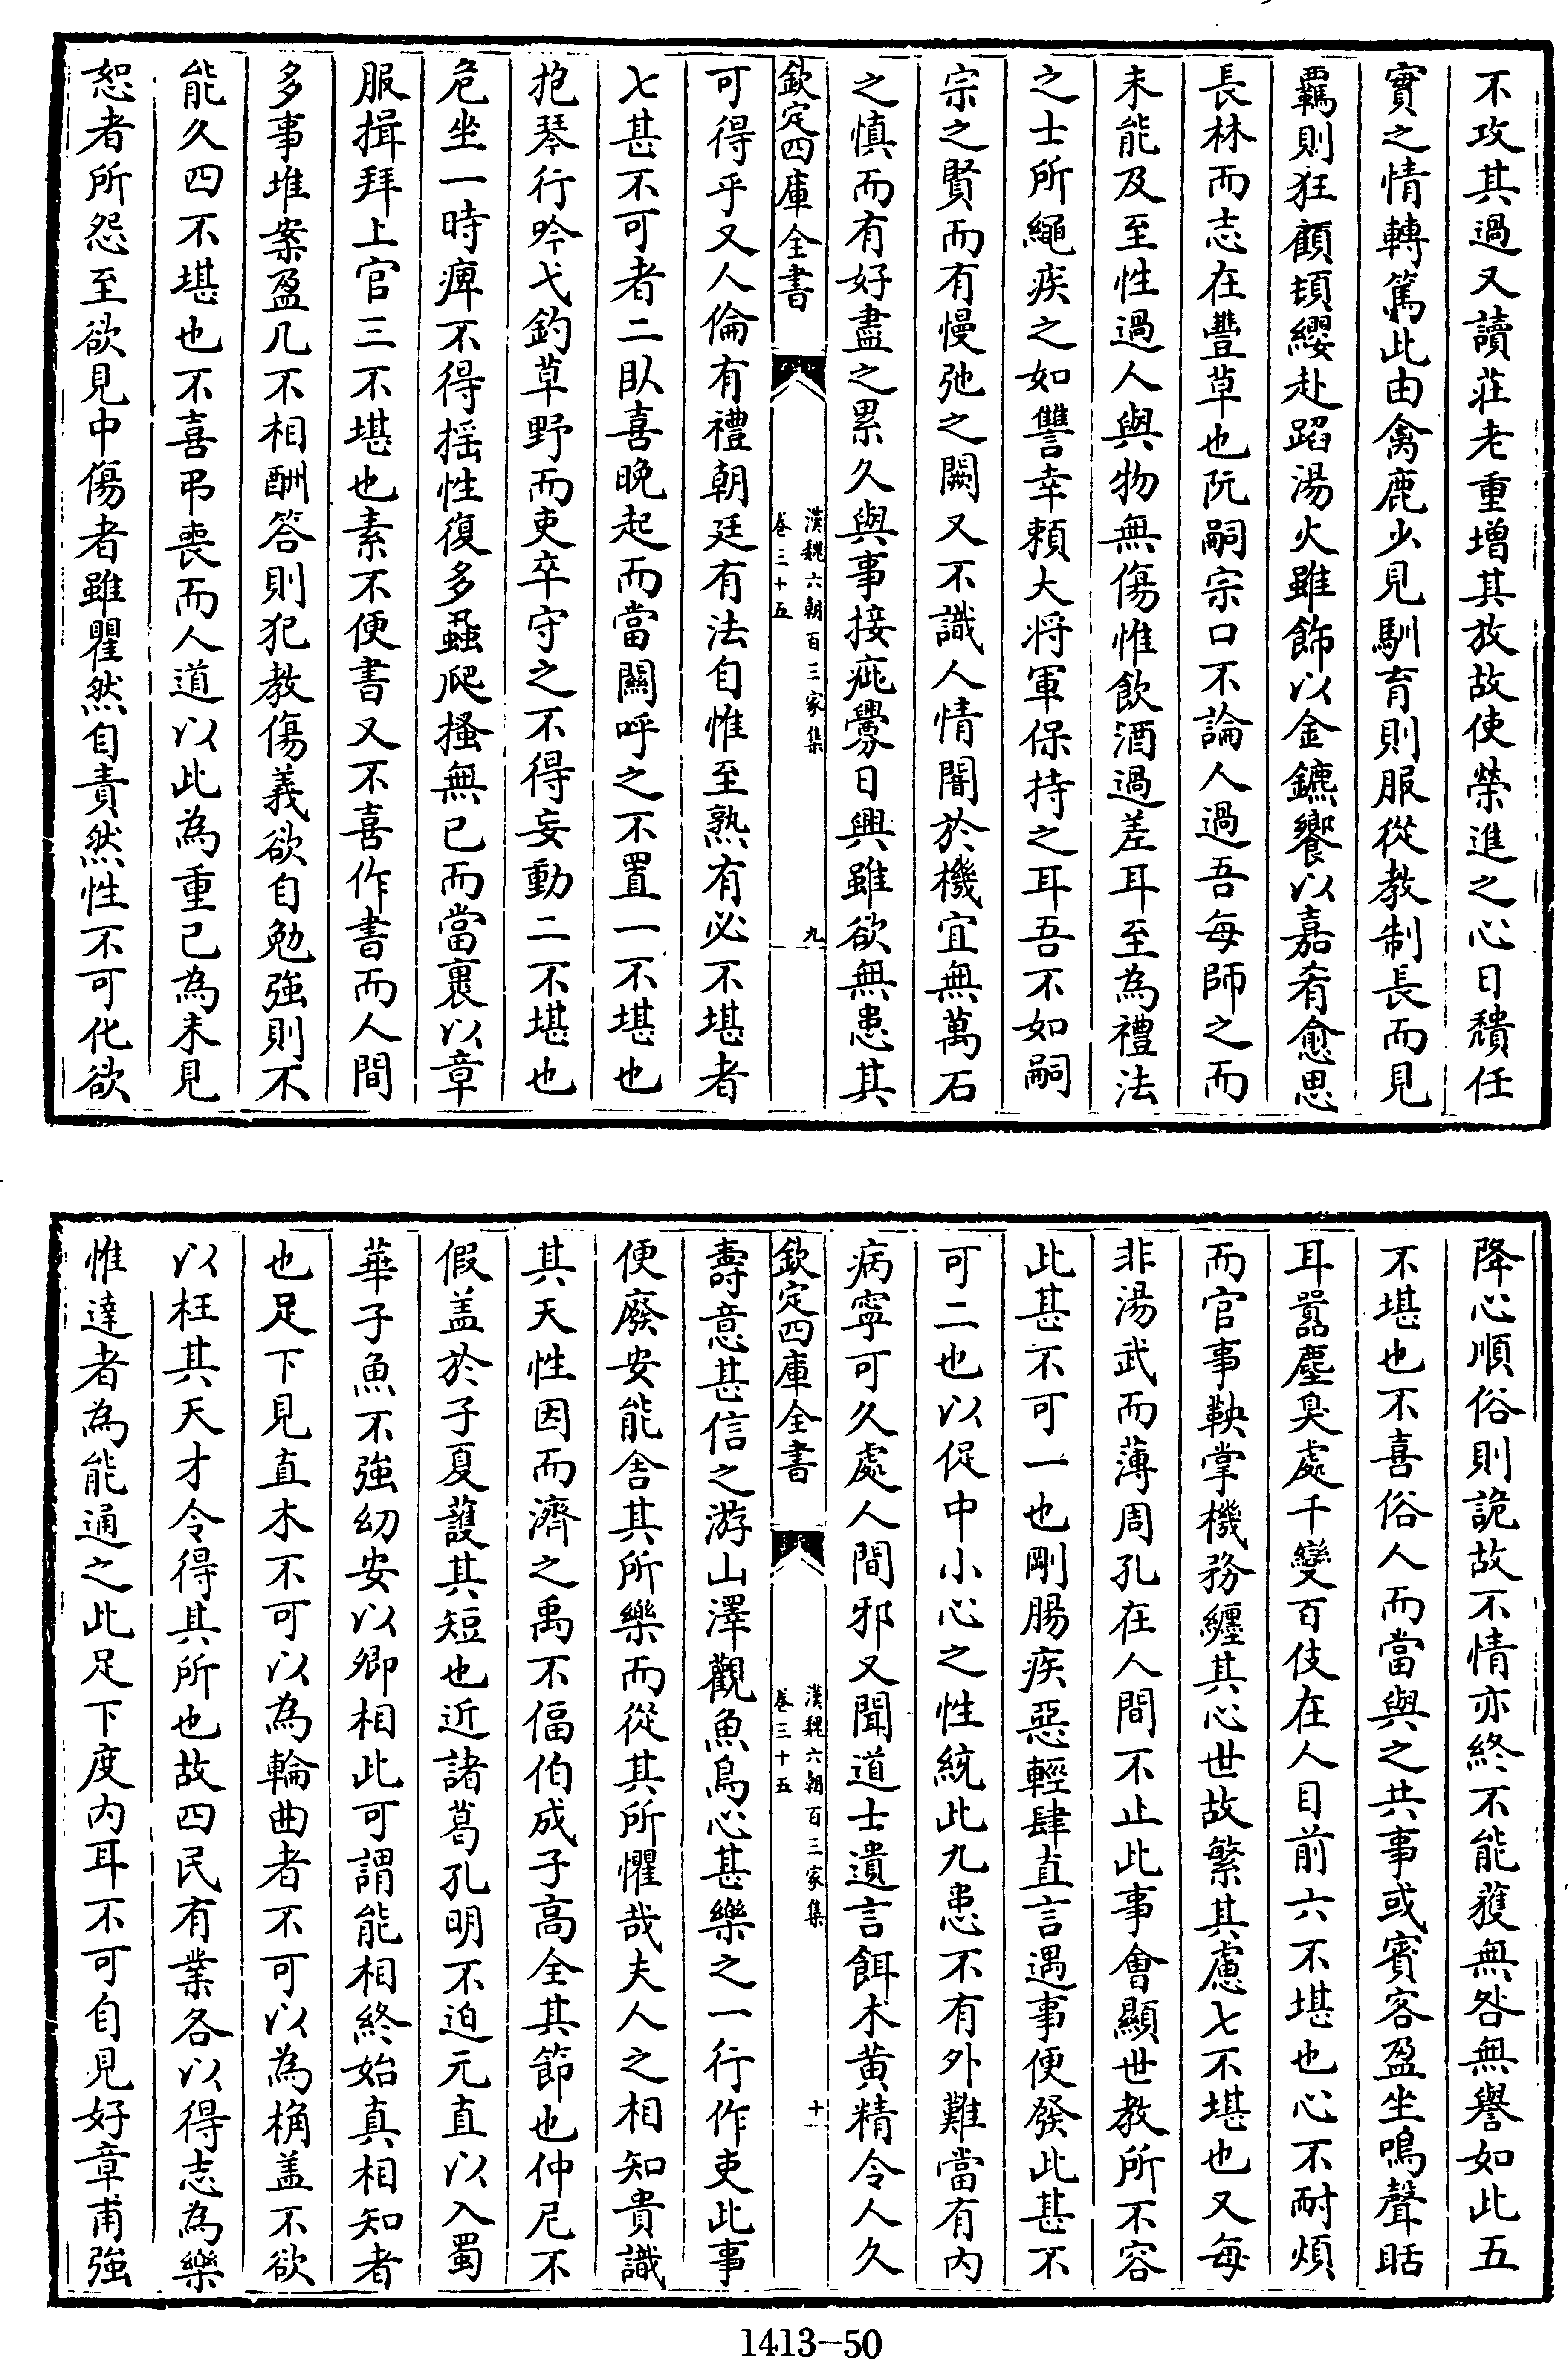 不攻其過又讀莊老重增其放故使榮進之心日頽任
實之情轉篤此由禽鹿少見馴育則服從教制長而見
羈則狂顧頓纓赴蹈湯火雖飾以金鑣饗以嘉肴愈思
長林而志在豐草也阮嗣宗口不論人過吾每師之而
未能及至性過人與物無傷惟飲酒過差耳至為禮法
之士所繩疾之如讐幸賴大將軍保持之耳吾不如嗣
宗之賢而有慢弛之闕又不識人情闇於機宜無萬石
之慎而有好盡之累久與事接疵釁日興雖欲無患其
欽定四庫全書
漢魏六朝百三家集
卷三十五
九
可得乎又人倫有禮朝廷有法自惟至熟有必不堪者
七甚不可者二臥喜晚起而當關呼之不置一不堪也
抱琴行吟弋釣草野而吏卒守之不得妄動二不堪也
危坐一時痺不得摇性復多蝨爬搔無已而當裹以章
服揖拜上官三不堪也素不便書又不喜作書而人間
多事堆案盈几不相酬答則犯教傷義欲自勉強則不
能久四不堪也不喜弔喪而人道以此為重已為未見
恕者所怨至欲見中傷者雖瞿然自責然性不可化欲
降心順俗則詭故不情亦終不能獲無咎無譽如此五
不堪也不喜俗人而當與之共事或賓客盈坐鳴聲聒
耳囂塵臭處千變百伎在人目前六不堪也心不耐煩
而官事鞅掌機務纏其心世故繁其慮七不堪也又每
非湯武而薄周孔在人間不止此事會顯世教所不容
此甚不可一也剛腸疾惡輕肆直言遇事便發此甚不
可二也以促中小心之性統此九患不有外難當有内
病寧可久處人間邪又聞道士遺言餌术黄精令人久
欽定四庫全書
漢魏六朝百三家集
卷三十五
十
壽意甚信之游山澤觀魚鳥心甚樂之一行作吏此事
便廢安能舍其所樂而從其所懼哉夫人之相知貴識
其天性因而濟之禹不偪伯成子高全其節也仲尼不
假盖於子夏護其短也近諸葛孔明不迫元直以入蜀
華子魚不強幼安以卿相此可謂能相終始真相知者
也足下見直木不可以為輪曲者不可以為桷盖不欲
以枉其天才令得其所也故四民有業各以得志為樂
惟達者為能通之此足下度内耳不可自見好章甫強
1413-50